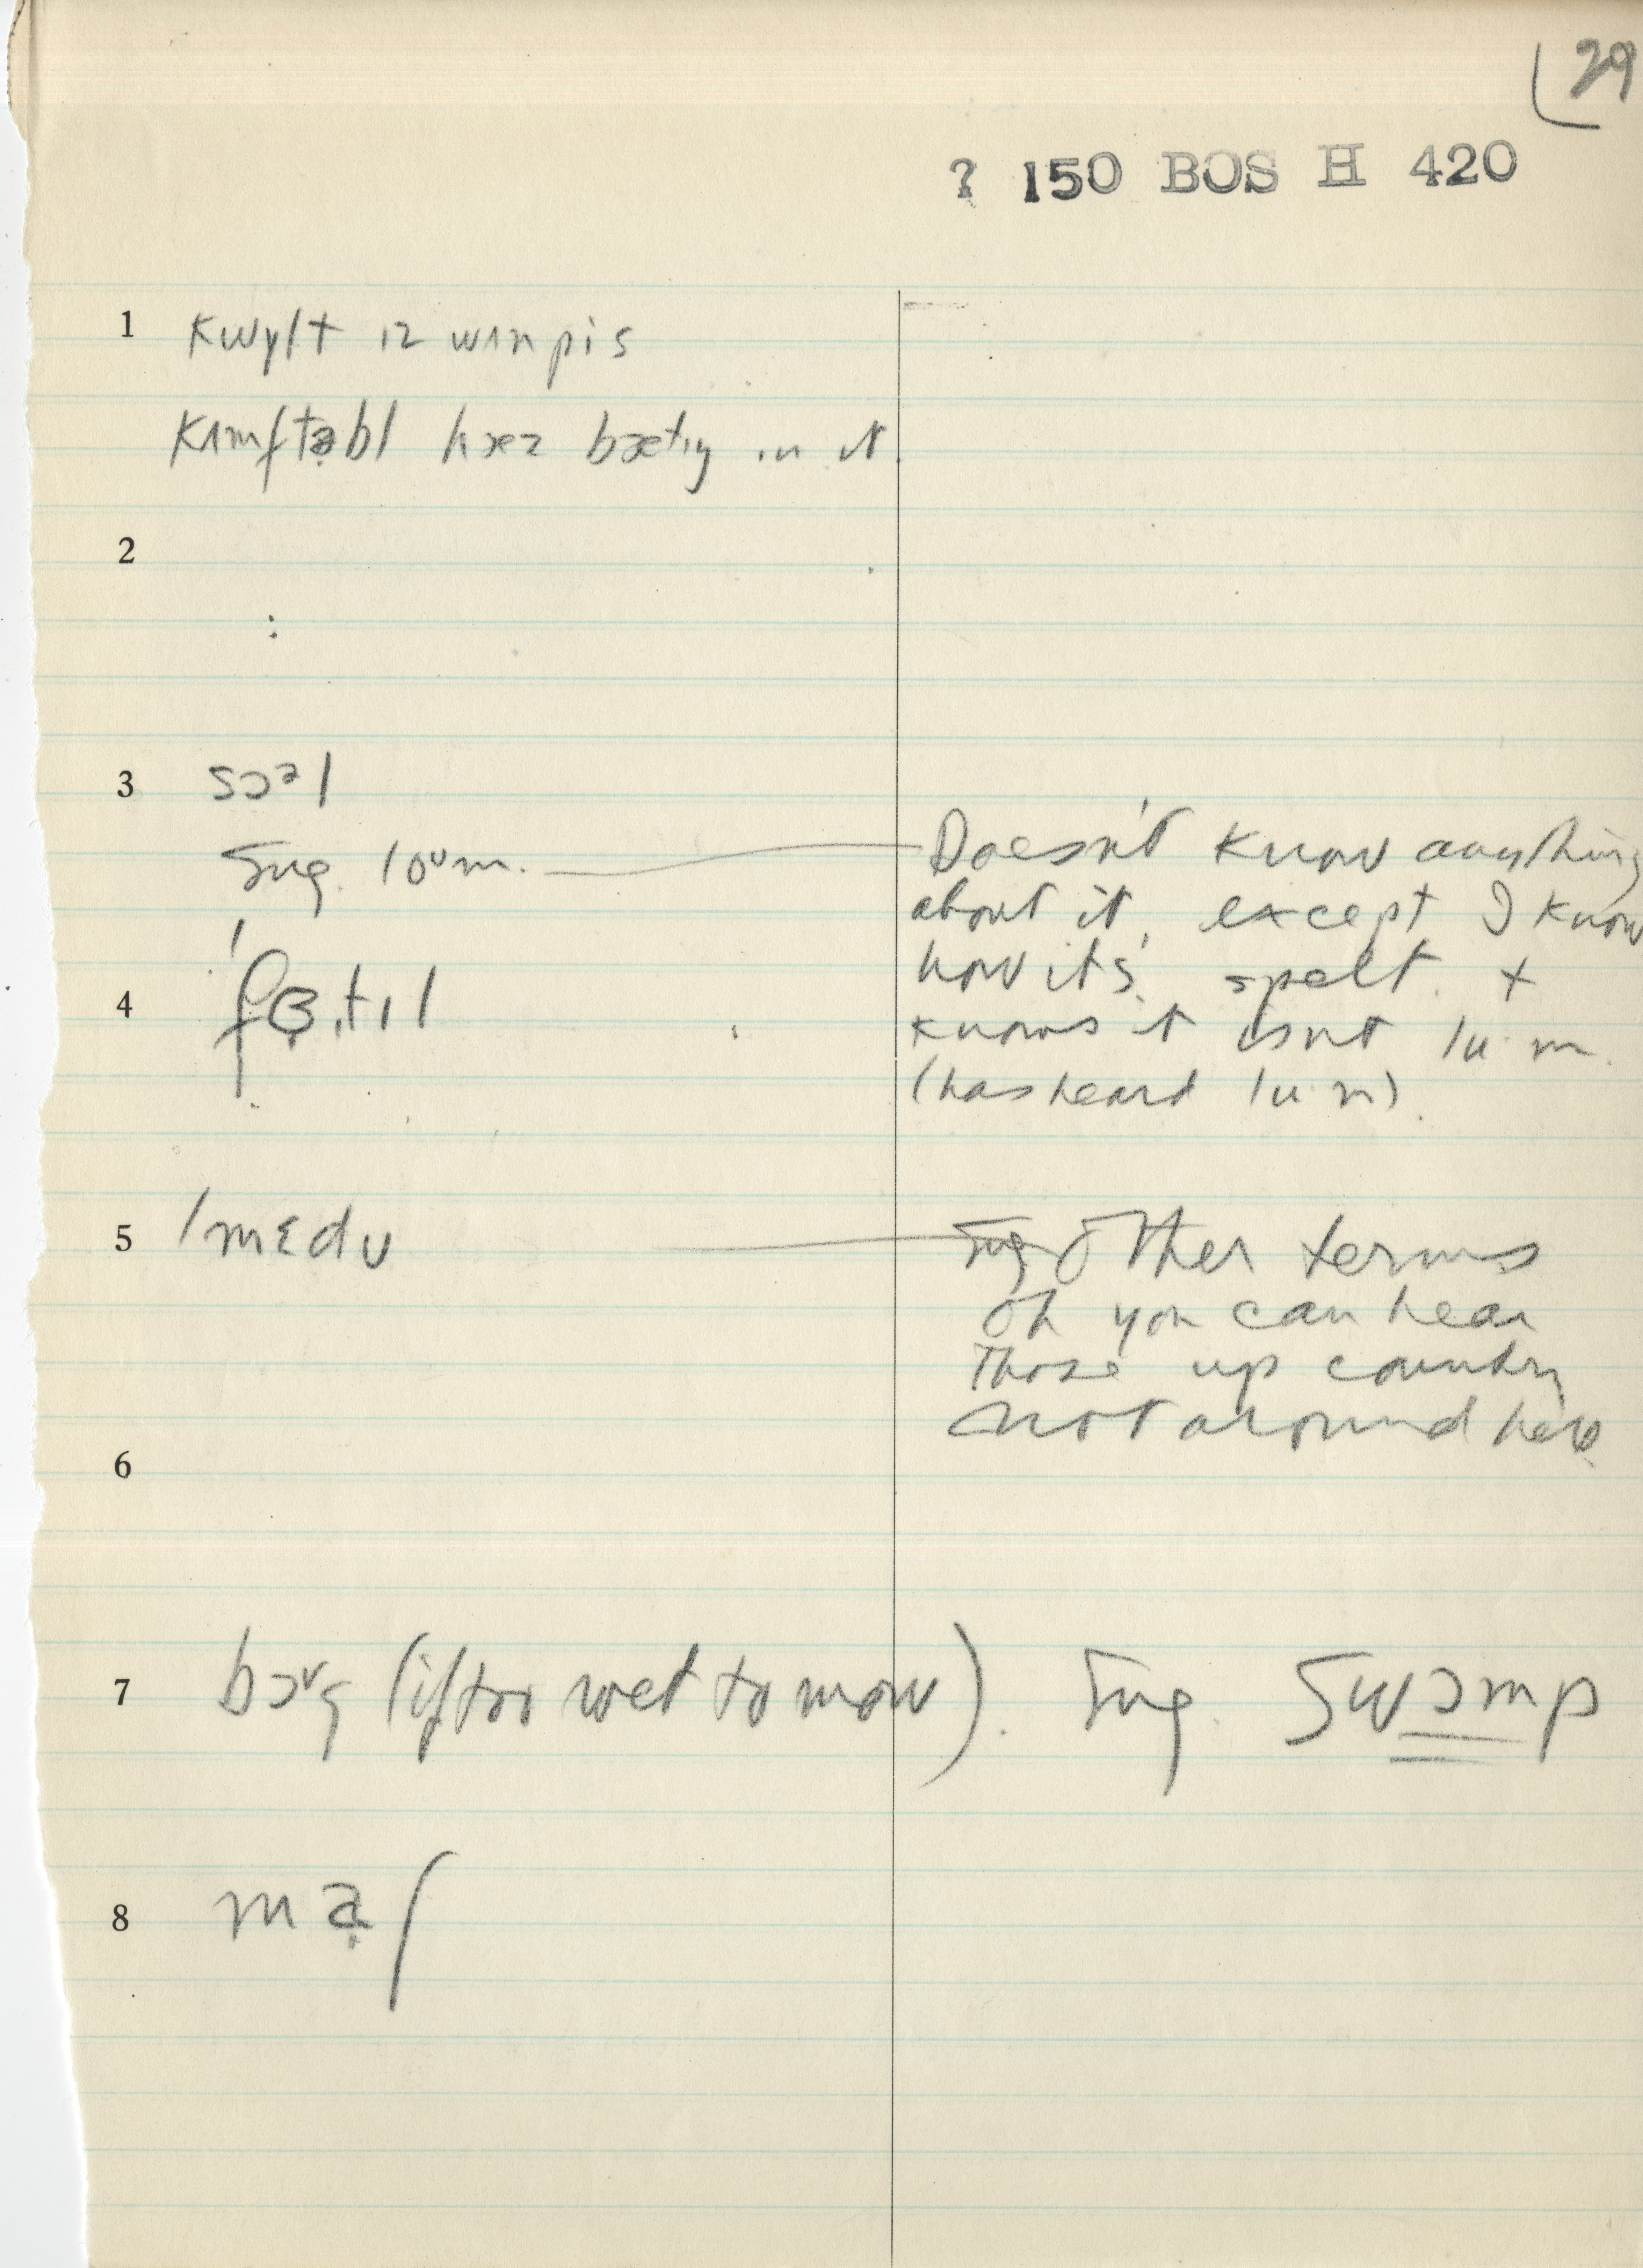 29
? 150 BOS H 420
1 kwɪlt ɪz wʌn pis
kʌmftəbl hæz bætɪŋ ɪn ɪt
2
3 sɔᵊl
sug. loᵘm. Doesn't know anything
about it, except I know
how it's spelt. +
4 ˈfɜ.tɪl
knows it isn't lu·m.
(has heard lu·m).
5 ˈmɛdʊ sug other terms
oh you can hear
those up country
not around here
6
7 bɔ˅g (if too wet to mow). sug. swɔmp
8 mạʃ